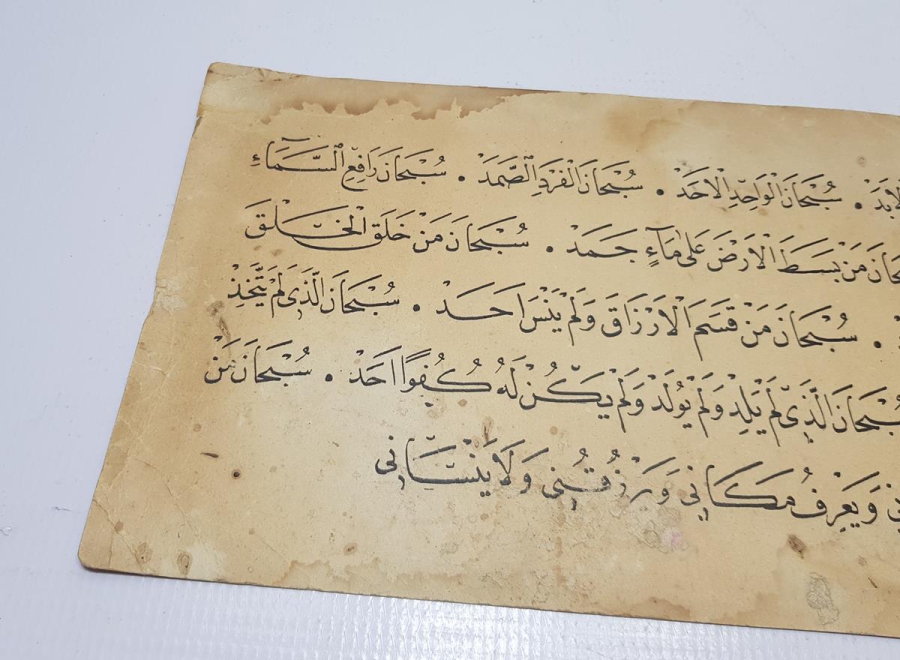 الْاَبَدْ . سُبْحَانَ الْوَاحِدِ الْاَحَدْ . سُبْحَانَ الْفَرْدِ الصَّمَدْ . سُبْحَانَ رَافِعِ السَّمَٓاءِ
مَنْ بَسَطَ الْاَرْضَ عَلٰى مَٓاءٍ جَمَدْ . سُبْحَانَ مَنْ خَلَقَ الْخَلْقَ
. سُبْحَانَ مَنْ قَسَمَ الْاَرْزَاقَ وَلَمْ يَنْسَ اَحَدْ . سُبْحَانَ الَّذِى لَمْ يَتَّخِذْ
سُبْحَانَ الَّذِى لَمْ يَلِدْ وَلَمْ يُولَدْ وَلَمْ يَكُنْ لَهُ كُفُوًا اَحَدْ . سُبْحَانَ مَنْ
وَيَعْرِفُ مَكَانِى وَيَرْزُقُنِى وَلَا يَنْسَانِى